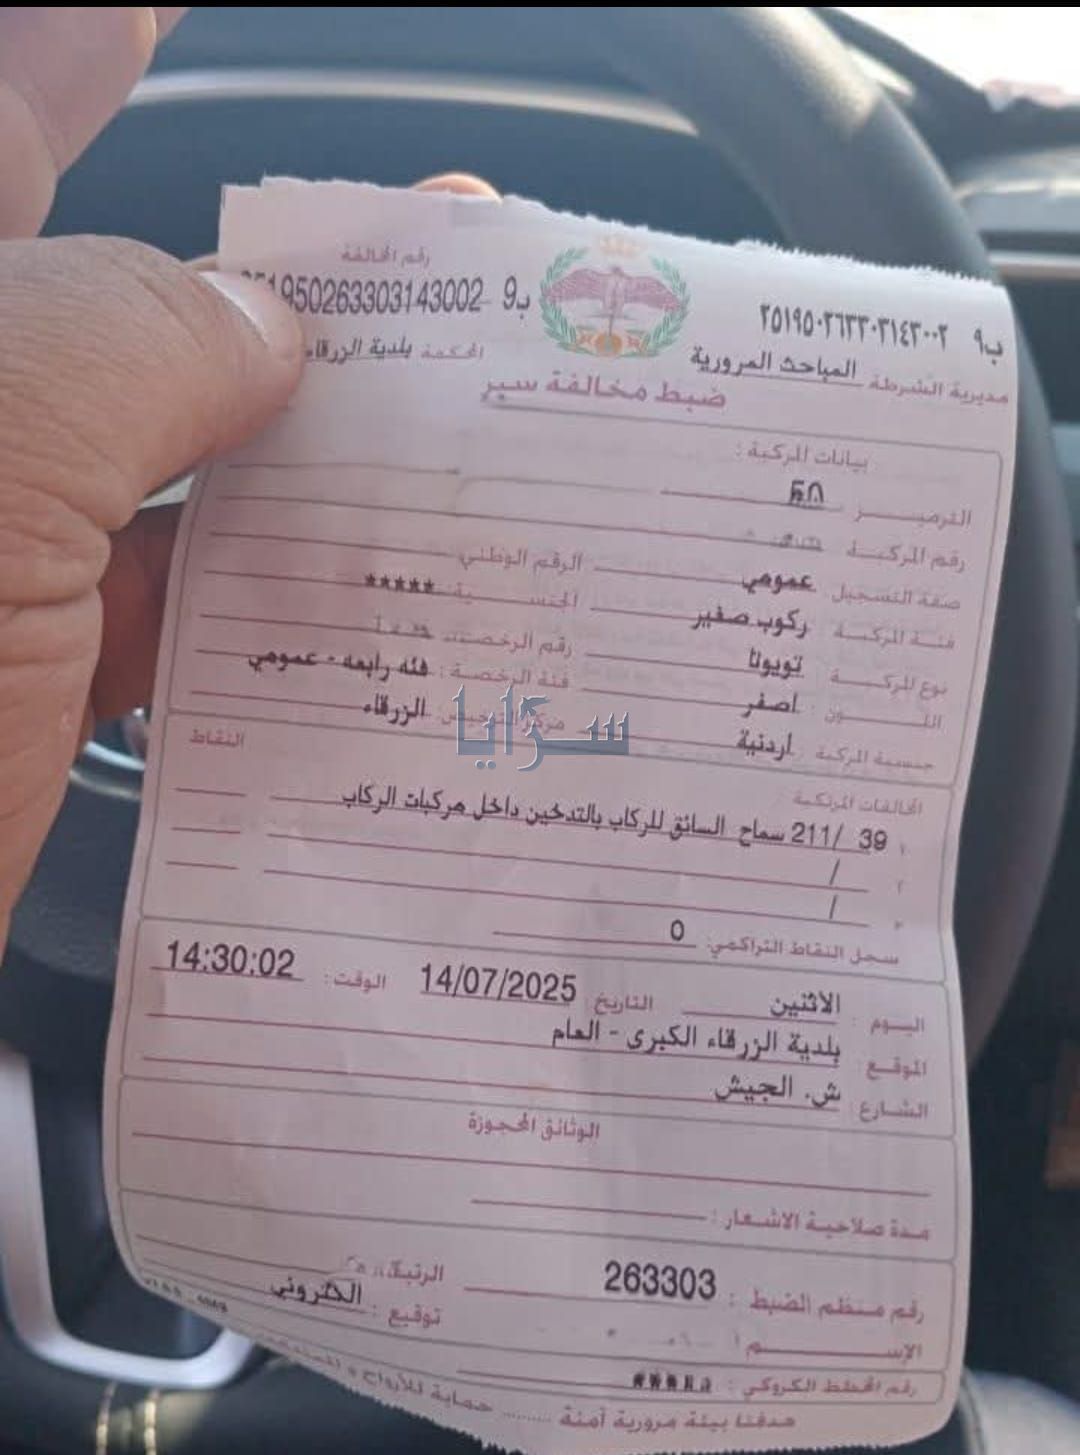 رقم المخالفة
ب9 ٢٥١٩٥٠٢٦٣٣٠٣١٤٣٠٠٢
ب9 1950263303143002
مديرية الشرطة المباحث المرورية
المحكمة بلدية الزرقاء
ضبط مخالفة سير
بيانات المركبة :
الترميز 50
رقم المركبة
صفة التسجيل : عمومي الرقم الوطني
فئة المركبة : ركوب صغير الجنسية : *****
نوع المركبة : تويوتا رقم الرخصة
اللون : اصفر فئة الرخصة : فئه رابعه - عمومي
جنسية المركبة : اردنية مركز الترخيص الزرقاء
سرايا
المخالفات المرتكبة النقاط
١ 39 /211 سماح السائق للركاب بالتدخين داخل مركبات الركاب
٢ /
٣ /
سجل النقاط التراكمي: 0
اليوم : الاثنين التاريخ : 14/07/2025 الوقت: 14:30:02
الموقع : بلدية الزرقاء الكبرى - العام
الشارع : ش. الجيش
الوثائق المحجوزة
مدة صلاحية الاشعار :
رقم منظم الضبط : 263303 الرتبة
الإسم توقيع : الكتروني
رقم المخطط الكروكي : *****
هدفنا بيئة مرورية آمنة ......... حماية للأرواح و